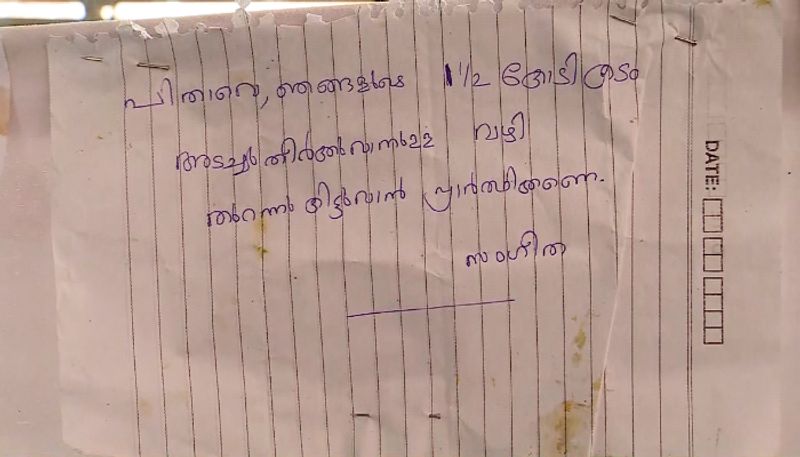 പിതാവെ, ഞങ്ങളുടെ 1 1/2 കോടി കടം
അടച്ചു തീർക്കുവാനുള്ള വഴി
തുറന്നു കിട്ടുവാൻ പ്രാർത്ഥിക്കണെ.
സംഗീത
DATE: